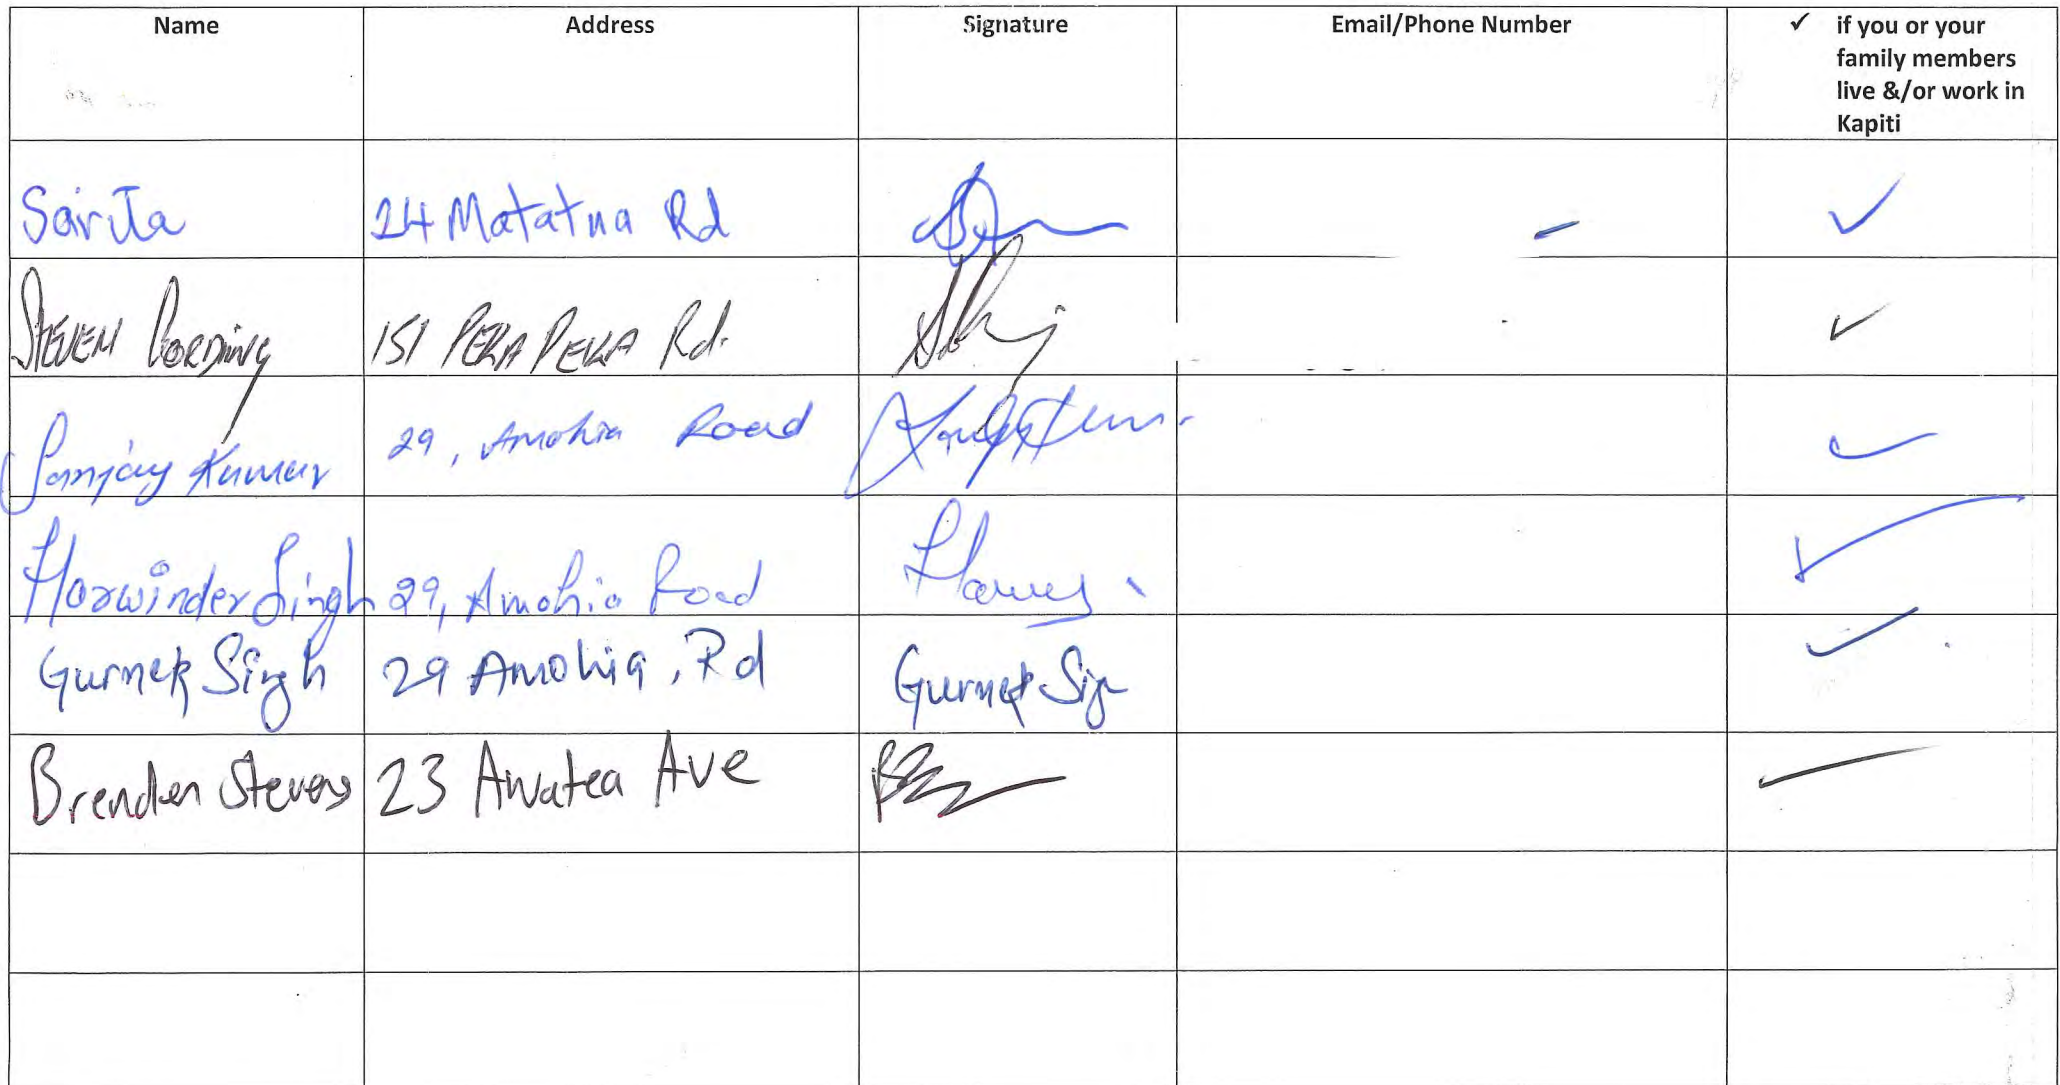 Name Address Signature Email/Phone Number ✓ if you or your
family members
live &/or work in
Kapiti
Sarita 24 Matatua Rd ✓
STEVEN CORDING 151 PEKA PEKA Rd. ✓
Sanjay Kumar 29, Amohia Road ✓
Harwinder Singh 29, Amohia Road ✓
Gurnek Singh 29 Amohia, Rd Gurnek Sig ✓
Brenden Stevens 23 Awatea Ave